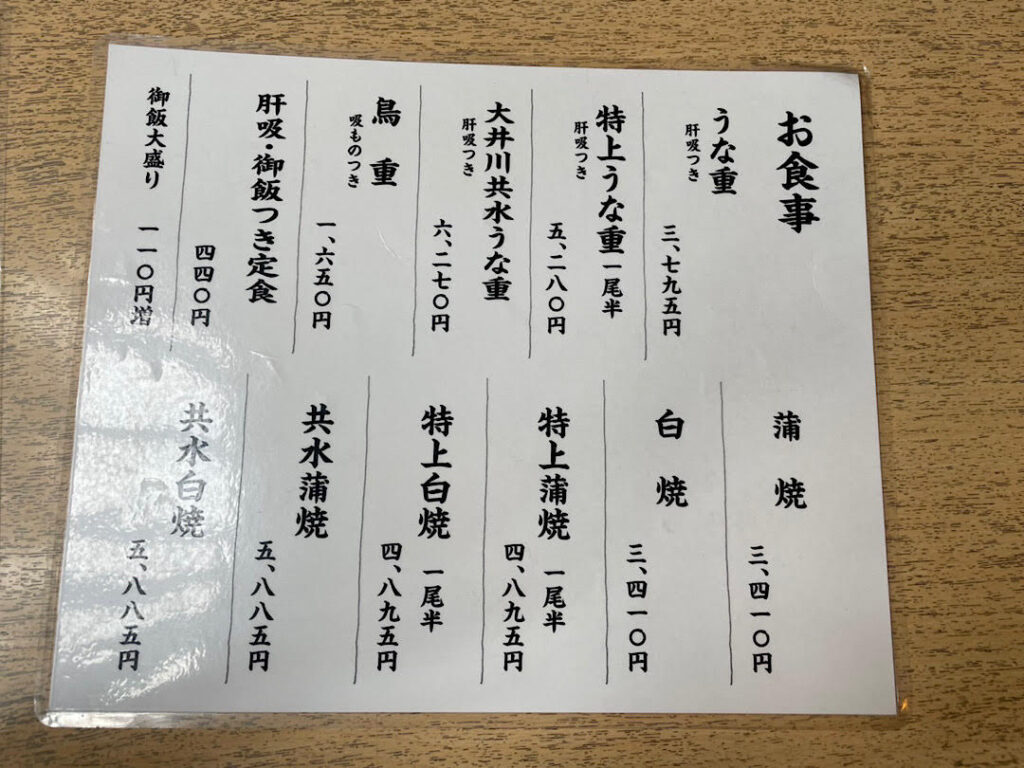 お食事
うな重
肝吸つき
三、七九五円
特上うな重 一尾半
肝吸つき
五、二八〇円
大井川共水うな重
肝吸つき
六、二七〇円
鳥重
吸ものつき
一、六五〇円
肝吸・御飯つき定食
四四〇円
御飯大盛り
一一〇円増
蒲焼
三、四一〇円
白焼
三、四一〇円
特上蒲焼 一尾半
四、八九五円
特上白焼 一尾半
四、八九五円
共水蒲焼
五、八八五円
共水白焼
五、八八五円